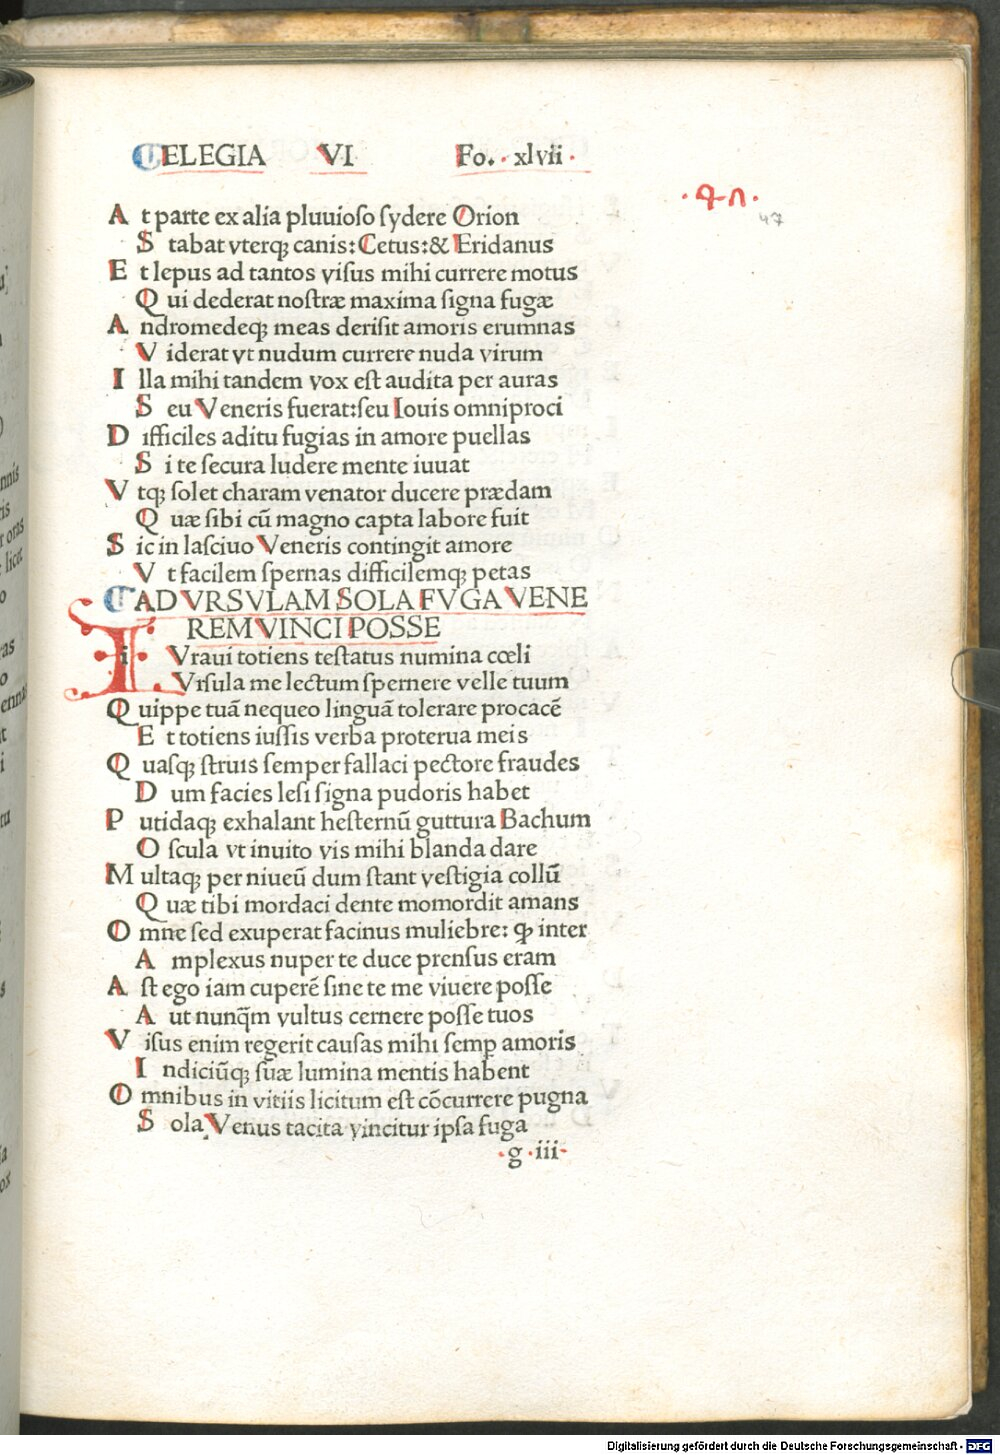 ELEGIA VI Fo. · xlvii ·
· 47 ·
47
A t parte ex alia pluuioſo ſydere Orion
S tabat vterqꝫ canis: Cetus: & Eridanus
E t lepus ad tantos viſus mihi currere motus
Q ui dederat noſtræ maxima ſigna fugæ
A ndromedeqꝫ meas deriſit amoris erumnas
V iderat vt nudum currere nuda virum
I lla mihi tandem vox eſt audita per auras
S eu Veneris fuerat: ſeu Iouis omniproci
D ifficiles aditu fugias in amore puellas
S i te ſecura ludere mente iuuat
V tqꝫ ſolet charam venator ducere prædam
Q uæ ſibi cũ magno capta labore fuit
S ic in laſciuo Veneris contingit amore
V t facilem ſpernas difficilemqꝫ petas
AD VRSVLAM SOLA FVGA VENE
REM VINCI POSSE
I i Vraui totiens teſtatus numina cœli
Vrſula me lectum ſpernere velle tuum
Q uippe tuã nequeo linguã tolerare procacẽ
E t totiens iuſſis verba proterua meis
Q uaſqꝫ ſtruis ſemper fallaci pectore fraudes
D um facies leſi ſigna pudoris habet
P utidaqꝫ exhalant heſternũ guttura Bachum
O ſcula vt inuito vis mihi blanda dare
M ultaqꝫ per niueũ dum ſtant veſtigia collũ
Q uæ tibi mordaci dente momordit amans
O mne ſed exuperat facinus muliebre: ꝙ inter
A mplexus nuper te duce prenſus eram
A ſt ego iam cuperẽ ſine te me viuere poſſe
A ut nunq̃m vultus cernere poſſe tuos
V iſus enim regerit cauſas mihi ſemꝑ amoris
I ndiciũqꝫ ſuæ lumina mentis habent
O mnibus in vitiis licitum eſt cõcurrere pugna
S ola Venus tacita vincitur ipſa fuga
· g · iii ·
Digitalisierung gefördert durch die Deutsche Forschungsgemeinschaft - DFG